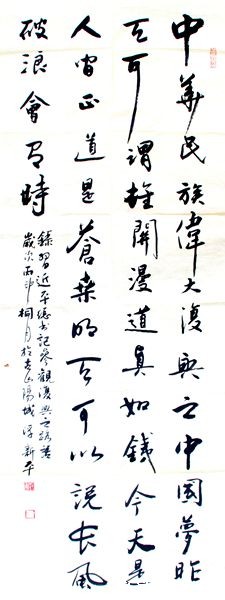 中華民族偉大復興之中國夢昨
天可謂雄關漫道真如鐵今天是
人間正道是蒼桑明天可以說長風
破浪會有時
錄習近平總書記參觀復興之路書
歲次丙申桐月於 陽城 新平